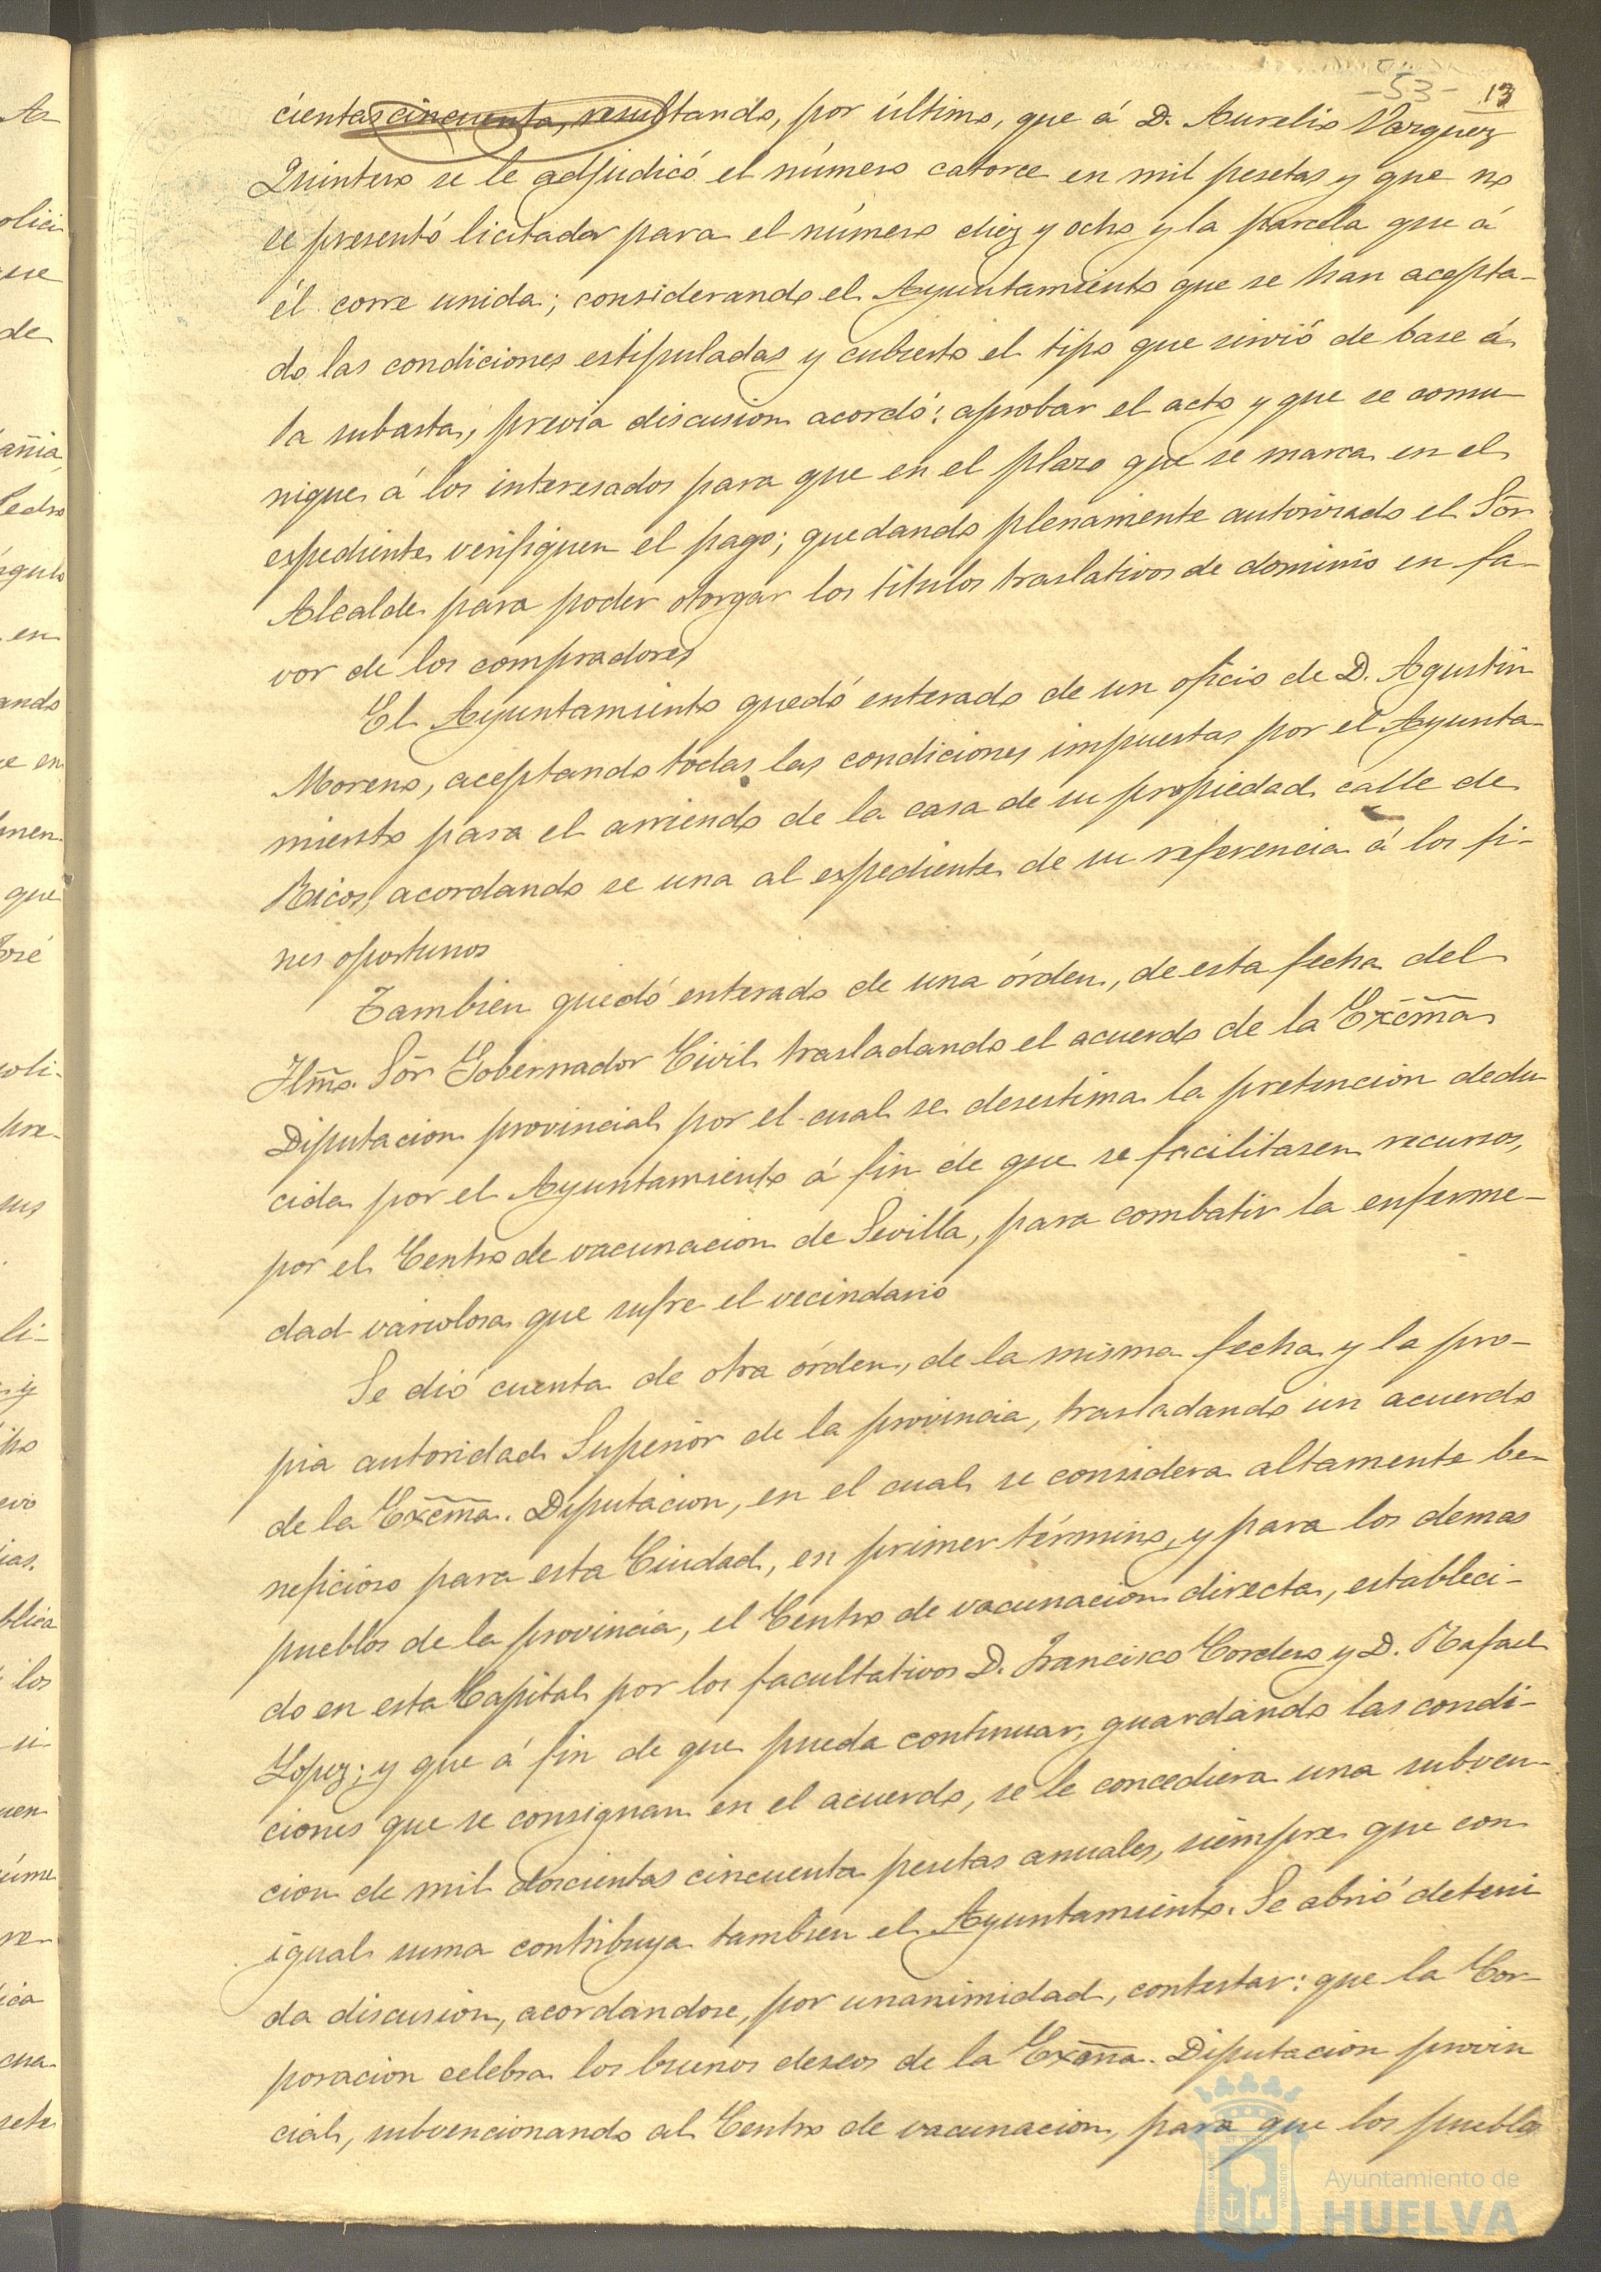 -53- 13
cientas cincuenta, resultando, por último, que á D. Aurelio Vazquez
Quintero se le adjudicó el número catorce en mil pesetas y que no
se presentó licitador para el número diez y ocho y la parcela que á
él corre unida; considerando el Ayuntamiento que se han acepta-
do las condiciones estipuladas y cubierto el tipo que sirvió de base á
la subasta, previa discusion acordó: aprobar el acto y que se comu-
nique á los interesados para que en el plazo que se marca en el
expediente verifiquen el pago; quedando plenamente autorizado el Sõr
Alcalde para poder otorgar los titulos traslativos de dominio en fa-
vor de los compradores
El Ayuntamiento quedó enterado de un oficio de D. Agustin
Moreno, aceptando todas las condiciones impuestas por el Ayunta-
miento para el arriendo de la casa de su propiedad calle de
Ricos, acordando se una al expediente de su referencia á los fi-
nes oportunos
Tambien quedó enterado de una órden, de esta fecha del
Ilm̃o. Sõr Gobernador Civil trasladando el acuerdo de la Excm̃a
Diputacion provincial por el cual se desestima la pretencion dedu
cida por el Ayuntamiento á fin de que se facilitasen recursos,
por el Centro de vacunacion de Sevilla, para combatir la enferme-
dad variolosa que sufre el vecindario
Se dió cuenta de otra órden, de la misma fecha y la pro-
pia autoridad Superior de la provincia, trasladando un acuerdo
de la Excm̃a. Diputacion, en el cual se considera altamente be-
neficioso para esta Ciudad, en primer término, y para los demas
pueblos de la provincia, el Centro de vacunacion directa, estableci-
do en esta Capital por los facultativos D. Francisco Cordero y D. Rafael
Lopez; y que á fin de que pueda continuar, guardando las condi-
ciones que se consignan en el acuerdo, se le concediera una subven-
cion de mil doscientas cincuenta pesetas anuales, siempre que con
igual suma contribuya tambien el Ayuntamiento. Se abrió deteni
da discusion, acordandose, por unanimidad, contestar: que la Cor-
poracion celebra los buenos deseos de la Excm̃a. Diputacion provin
cial, subvencionando al Centro de vacunacion, para que los pueblos
Ayuntamiento de
HUELVA